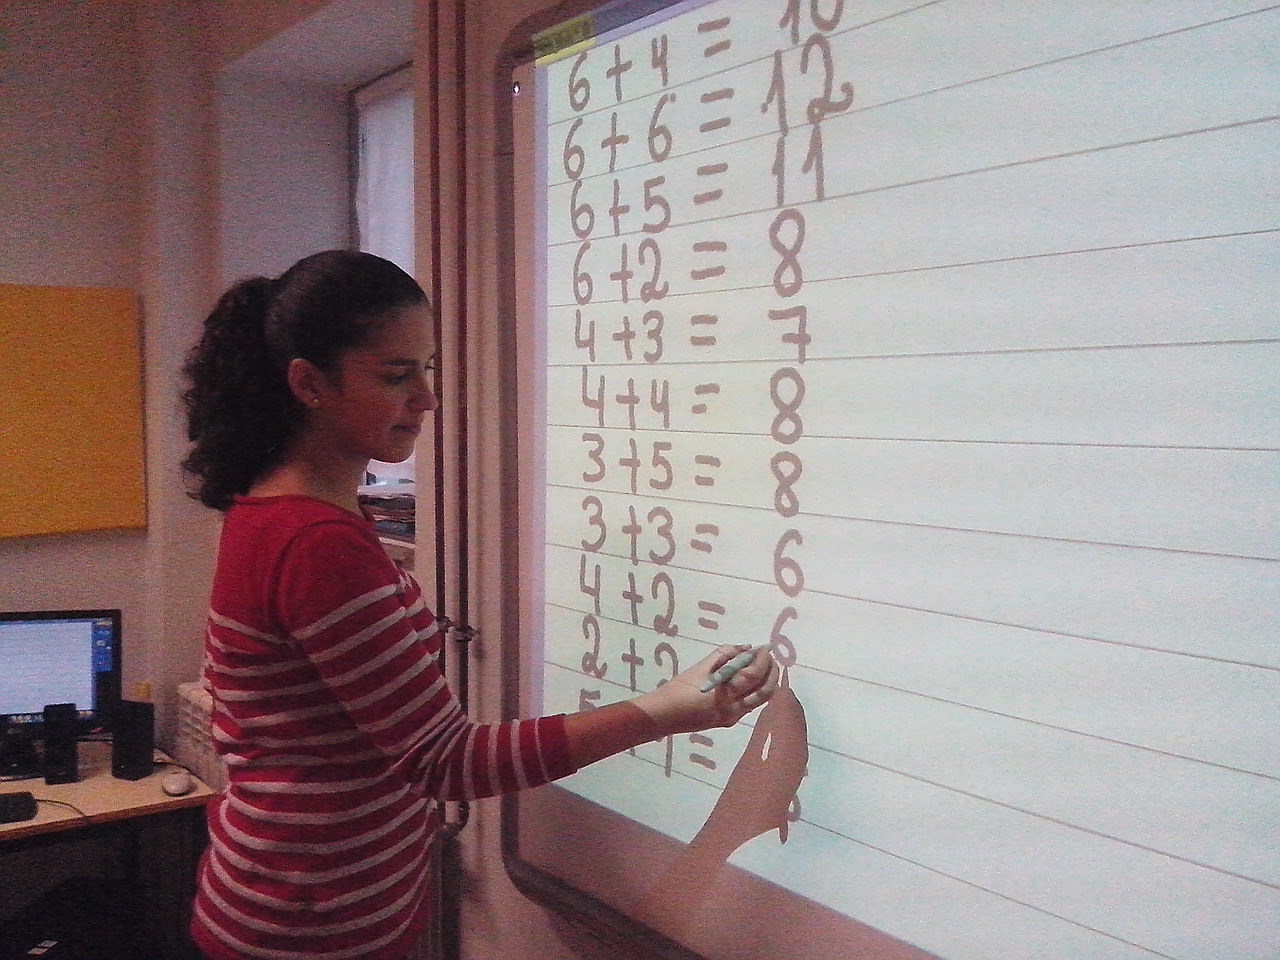 6 + 4 = 10
6 + 6 = 12
6 + 5 = 11
6 + 2 = 8
4 + 3 = 7
4 + 4 = 8
3 + 5 = 8
3 + 3 = 6
4 + 2 = 6
2 + 2